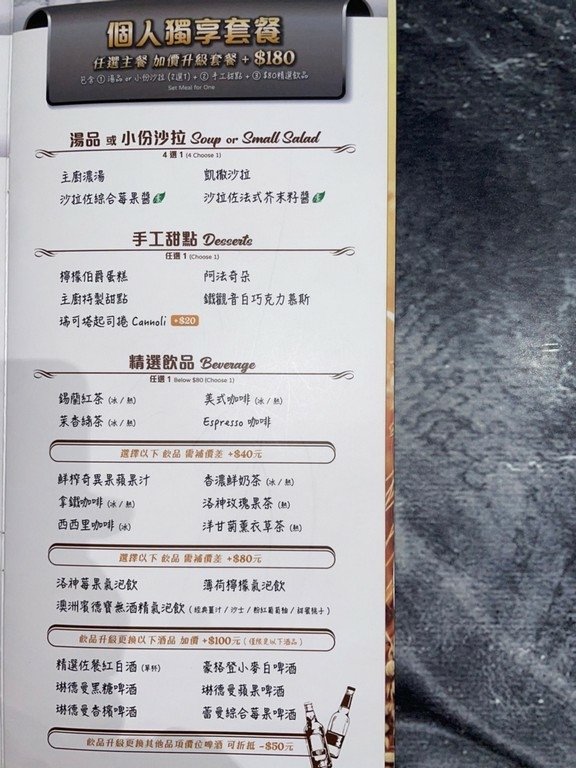 個人獨享套餐
任選主餐 加價升級套餐 + $180
包含 ① 湯品 or 小份沙拉 (2選1) + ② 手工甜點 + ③ $80精選飲品
Set Meal for One
湯品 或 小份沙拉 Soup or Small Salad
4 選 1 (4 Choose 1)
主廚濃湯 凱撒沙拉
沙拉佐綜合莓果醬 沙拉佐法式芥末籽醬
手工甜點 Desserts
任選 1 (Choose 1)
檸檬伯爵蛋糕 阿法奇朵
主廚特製甜點 鐵觀音白巧克力慕斯
瑞可塔起司捲 Cannoli +$20
精選飲品 Beverage
任選 1 Below $80 (Choose 1)
錫蘭紅茶 (冰 / 熱) 美式咖啡 (冰 / 熱)
茉香綠茶 (冰 / 熱) Espresso 咖啡
選擇以下 飲品 需補價差 +$40元
鮮榨奇異果蘋果汁 香濃鮮奶茶 (冰 / 熱)
拿鐵咖啡 (冰 / 熱) 洛神玫瑰果茶 (熱)
西西里咖啡 (冰) 洋甘菊薰衣草茶 (熱)
選擇以下 飲品 需補價差 +$80元
洛神莓果氣泡飲 薄荷檸檬氣泡飲
澳洲賓德寶無酒精氣泡飲 (經典薑汁 / 沙士 / 粉紅葡萄柚 / 甜蜜桃子)
飲品升級更換以下酒品 加價 +$100元 (僅限更以下酒品)
精選佐餐紅白酒 (單杯) 豪格登小麥白啤酒
琳德曼黑糖啤酒 琳德曼蘋果啤酒
琳德曼香檳啤酒 蕾曼綜合莓果啤酒
飲品升級更換其他品項價位啤酒 可折抵 -$50元